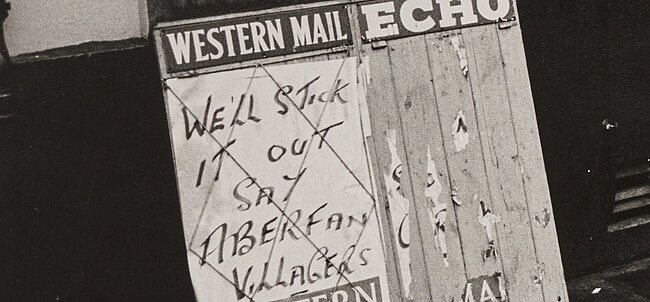 WESTERN MAIL
ECHO
WE'LL STICK
IT OUT
SAY
ABERFAN
VILLAGERS
TERN
MA